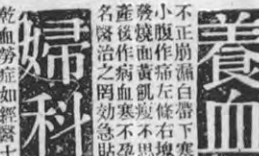 養血
不正崩漏白帶下寒
小腹作痛左條右塊
發燒血黃飢瘦不思
產後作病血寒不孕
名醫治之罔効急貼
婦科
乾血勞症如經醫士